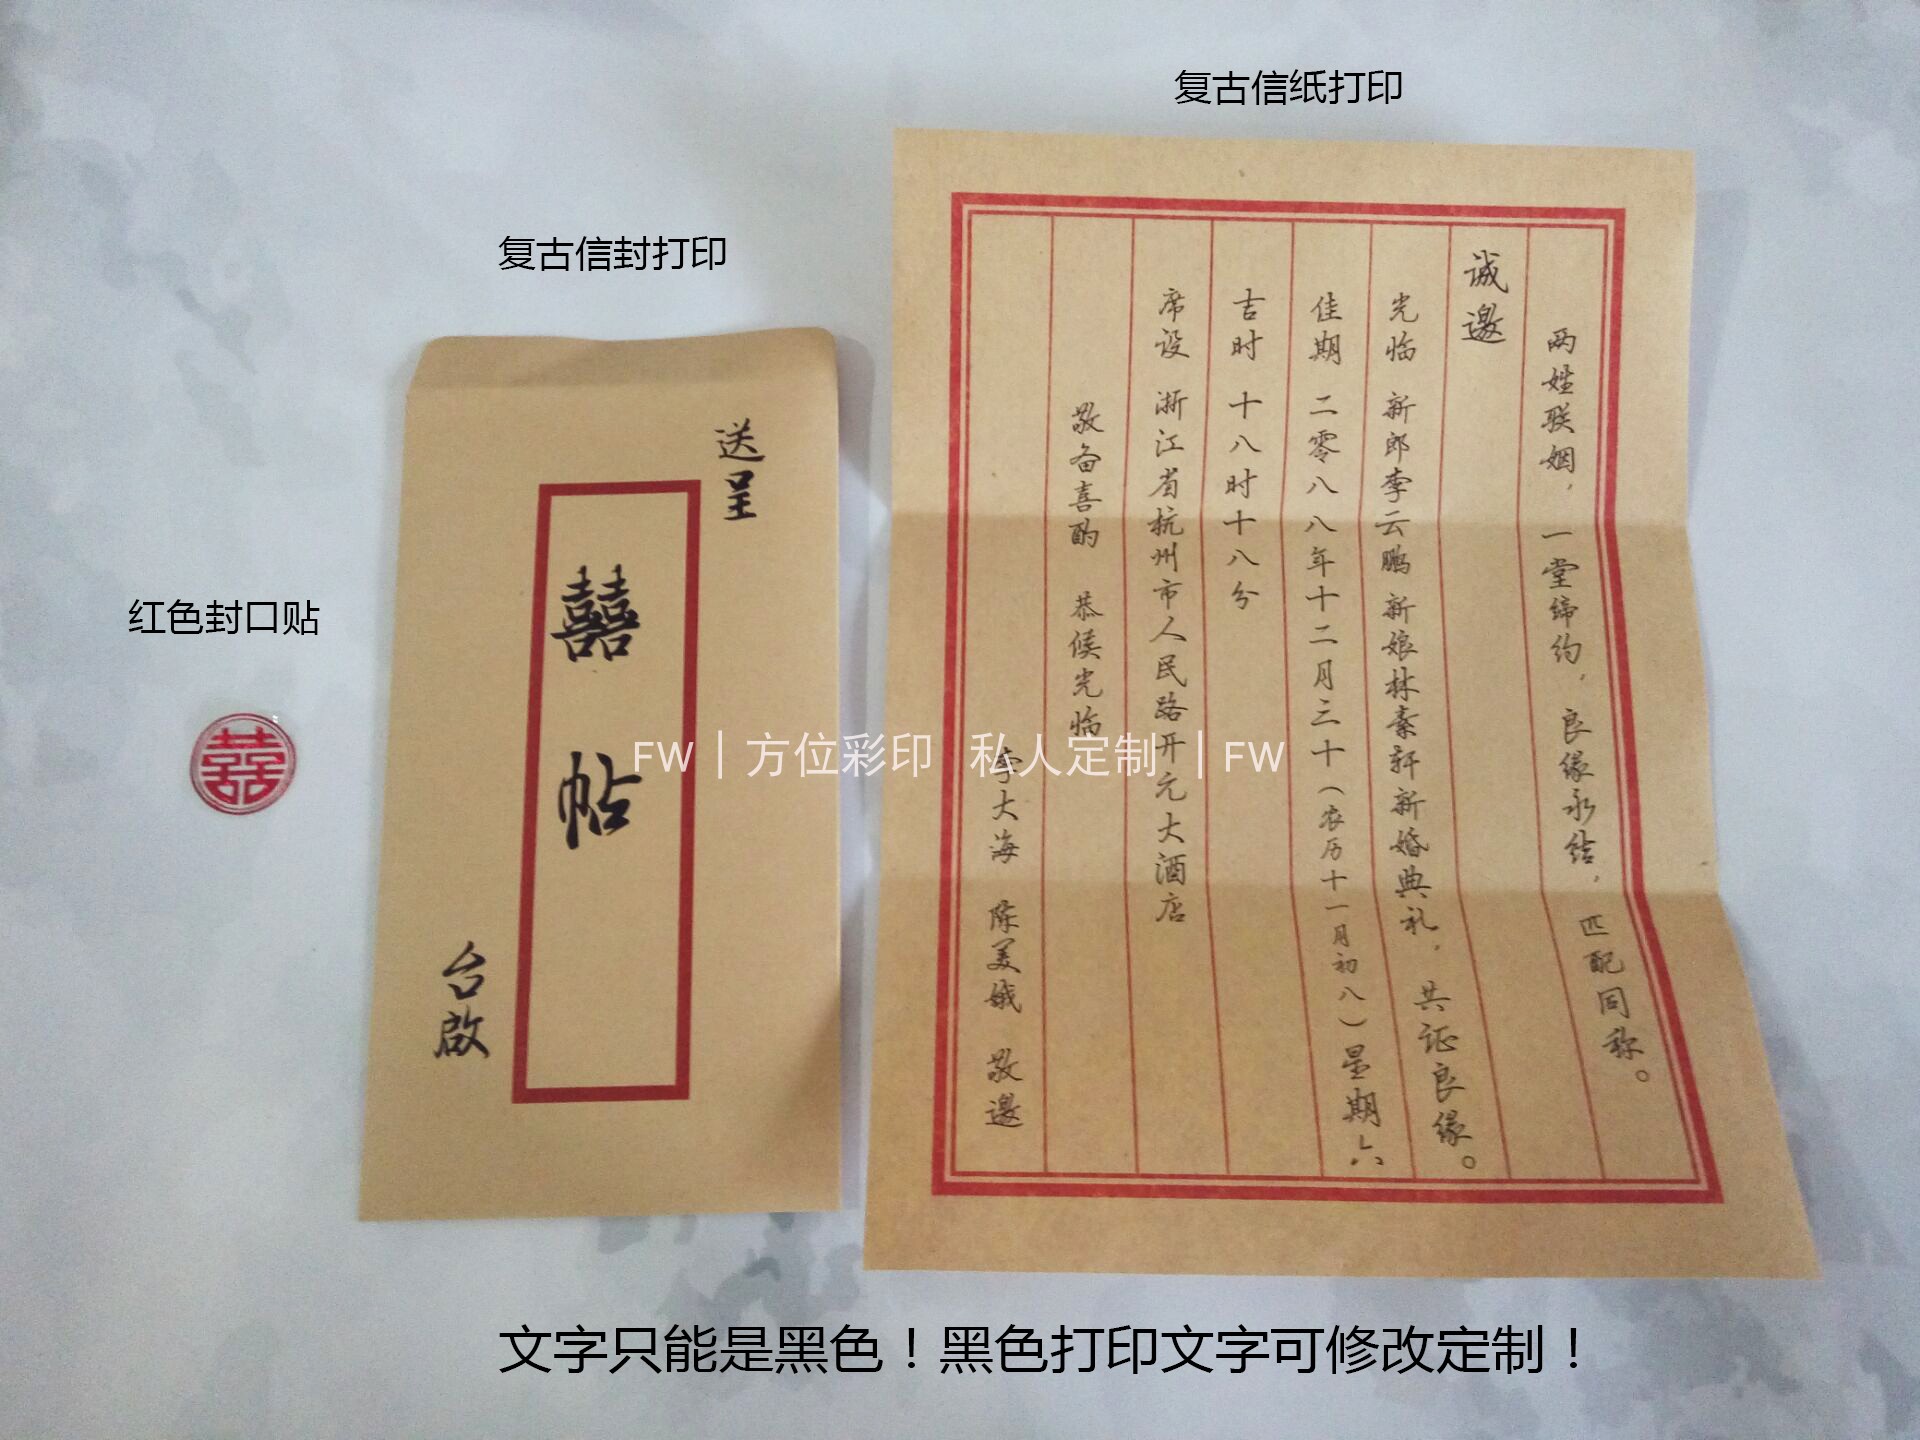 复古信纸打印
复古信封打印
红色封口贴
囍
送呈
囍帖
台啟
两姓联姻，一堂缔约，良缘永结，匹配同称。
诚邀
光临 新郎李云鹏 新娘林素轩新婚典礼，共证良缘。
佳期 二零八八年十二月三十（农历十一月初八）星期六
吉时 十八时十八分
席设 浙江省杭州市人民路开元大酒店
敬备喜酌 恭候光临
李大海 陈美娥 敬邀
FW｜方位彩印 私人定制｜FW
文字只能是黑色！黑色打印文字可修改定制！